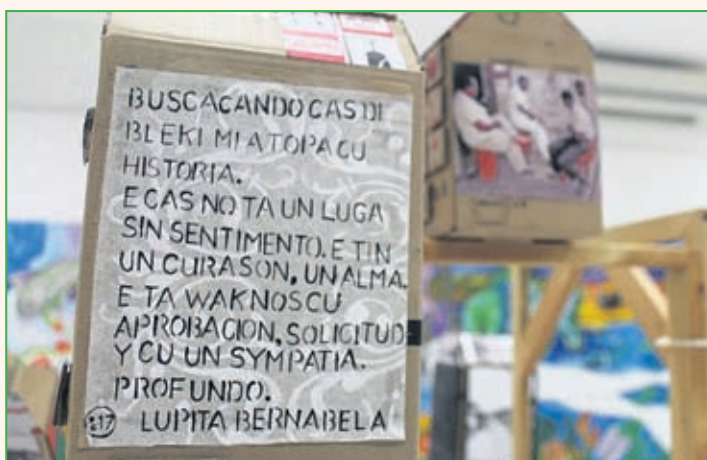 BUSCACANDO CAS DI
BLEKI MI A TOPA CU
HISTORIA.
E CAS NO TA UN LUGA
SIN SENTIMENTO. E TIN
UN CURASON, UN ALMA.
E TA WAKNOS CU
APROBACION, SOLICITUD
Y CU UN SYMPATIA.
PROFUNDO.
LUPITA BERNABELA